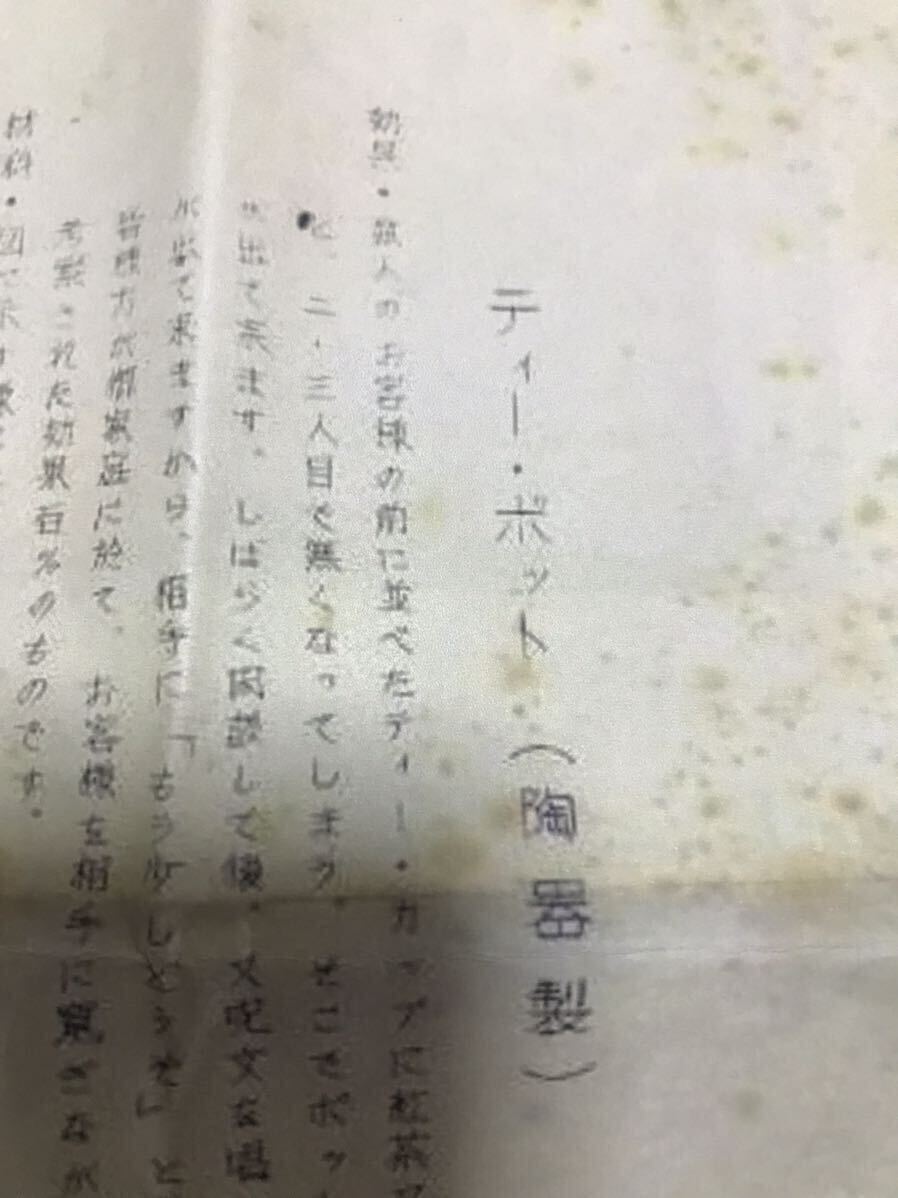 ティー・ポット（陶器製）
効果・数人のお客様の前に並べたティー・カップに紅茶
と、二・三人目で無くなってしまう。そこでポッ
出て来ます。しばらく閑談して後、又呪文を唱
出て来ますから、相手に「もう少しどうぞ」と
皆様方が御家庭に於て、お客様を相手に驚きなが
考察された効果百％のものです。
材料・図で示す様